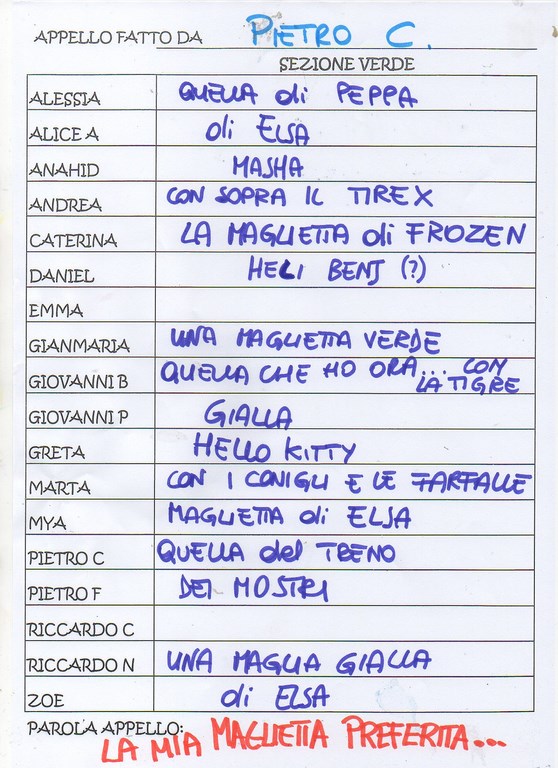 APPELLO FATTO DA PIETRO C.
SEZIONE VERDE
ALESSIA QUELLA di PEPPA
ALICE A di ELSA
ANAHID MASHA
ANDREA CON SOPRA IL TIREX
CATERINA LA MAGLIETTA di FROZEN
DANIEL HELI BENJ (?)
EMMA
GIANMARIA UNA MAGLIETTA VERDE
GIOVANNI B QUELLA CHE HO ORA... CON LA TIGRE
GIOVANNI P GIALLA
GRETA HELLO KITTY
MARTA CON I CONIGLI E LE FARFALLE
MYA MAGLIETTA di ELSA
PIETRO C QUELLA del TRENO
PIETRO F DEI MOSTRI
RICCARDO C
RICCARDO N UNA MAGLIA GIALLA
ZOE di ELSA
PAROLA APPELLO: LA MIA MAGLIETTA PREFERITA...